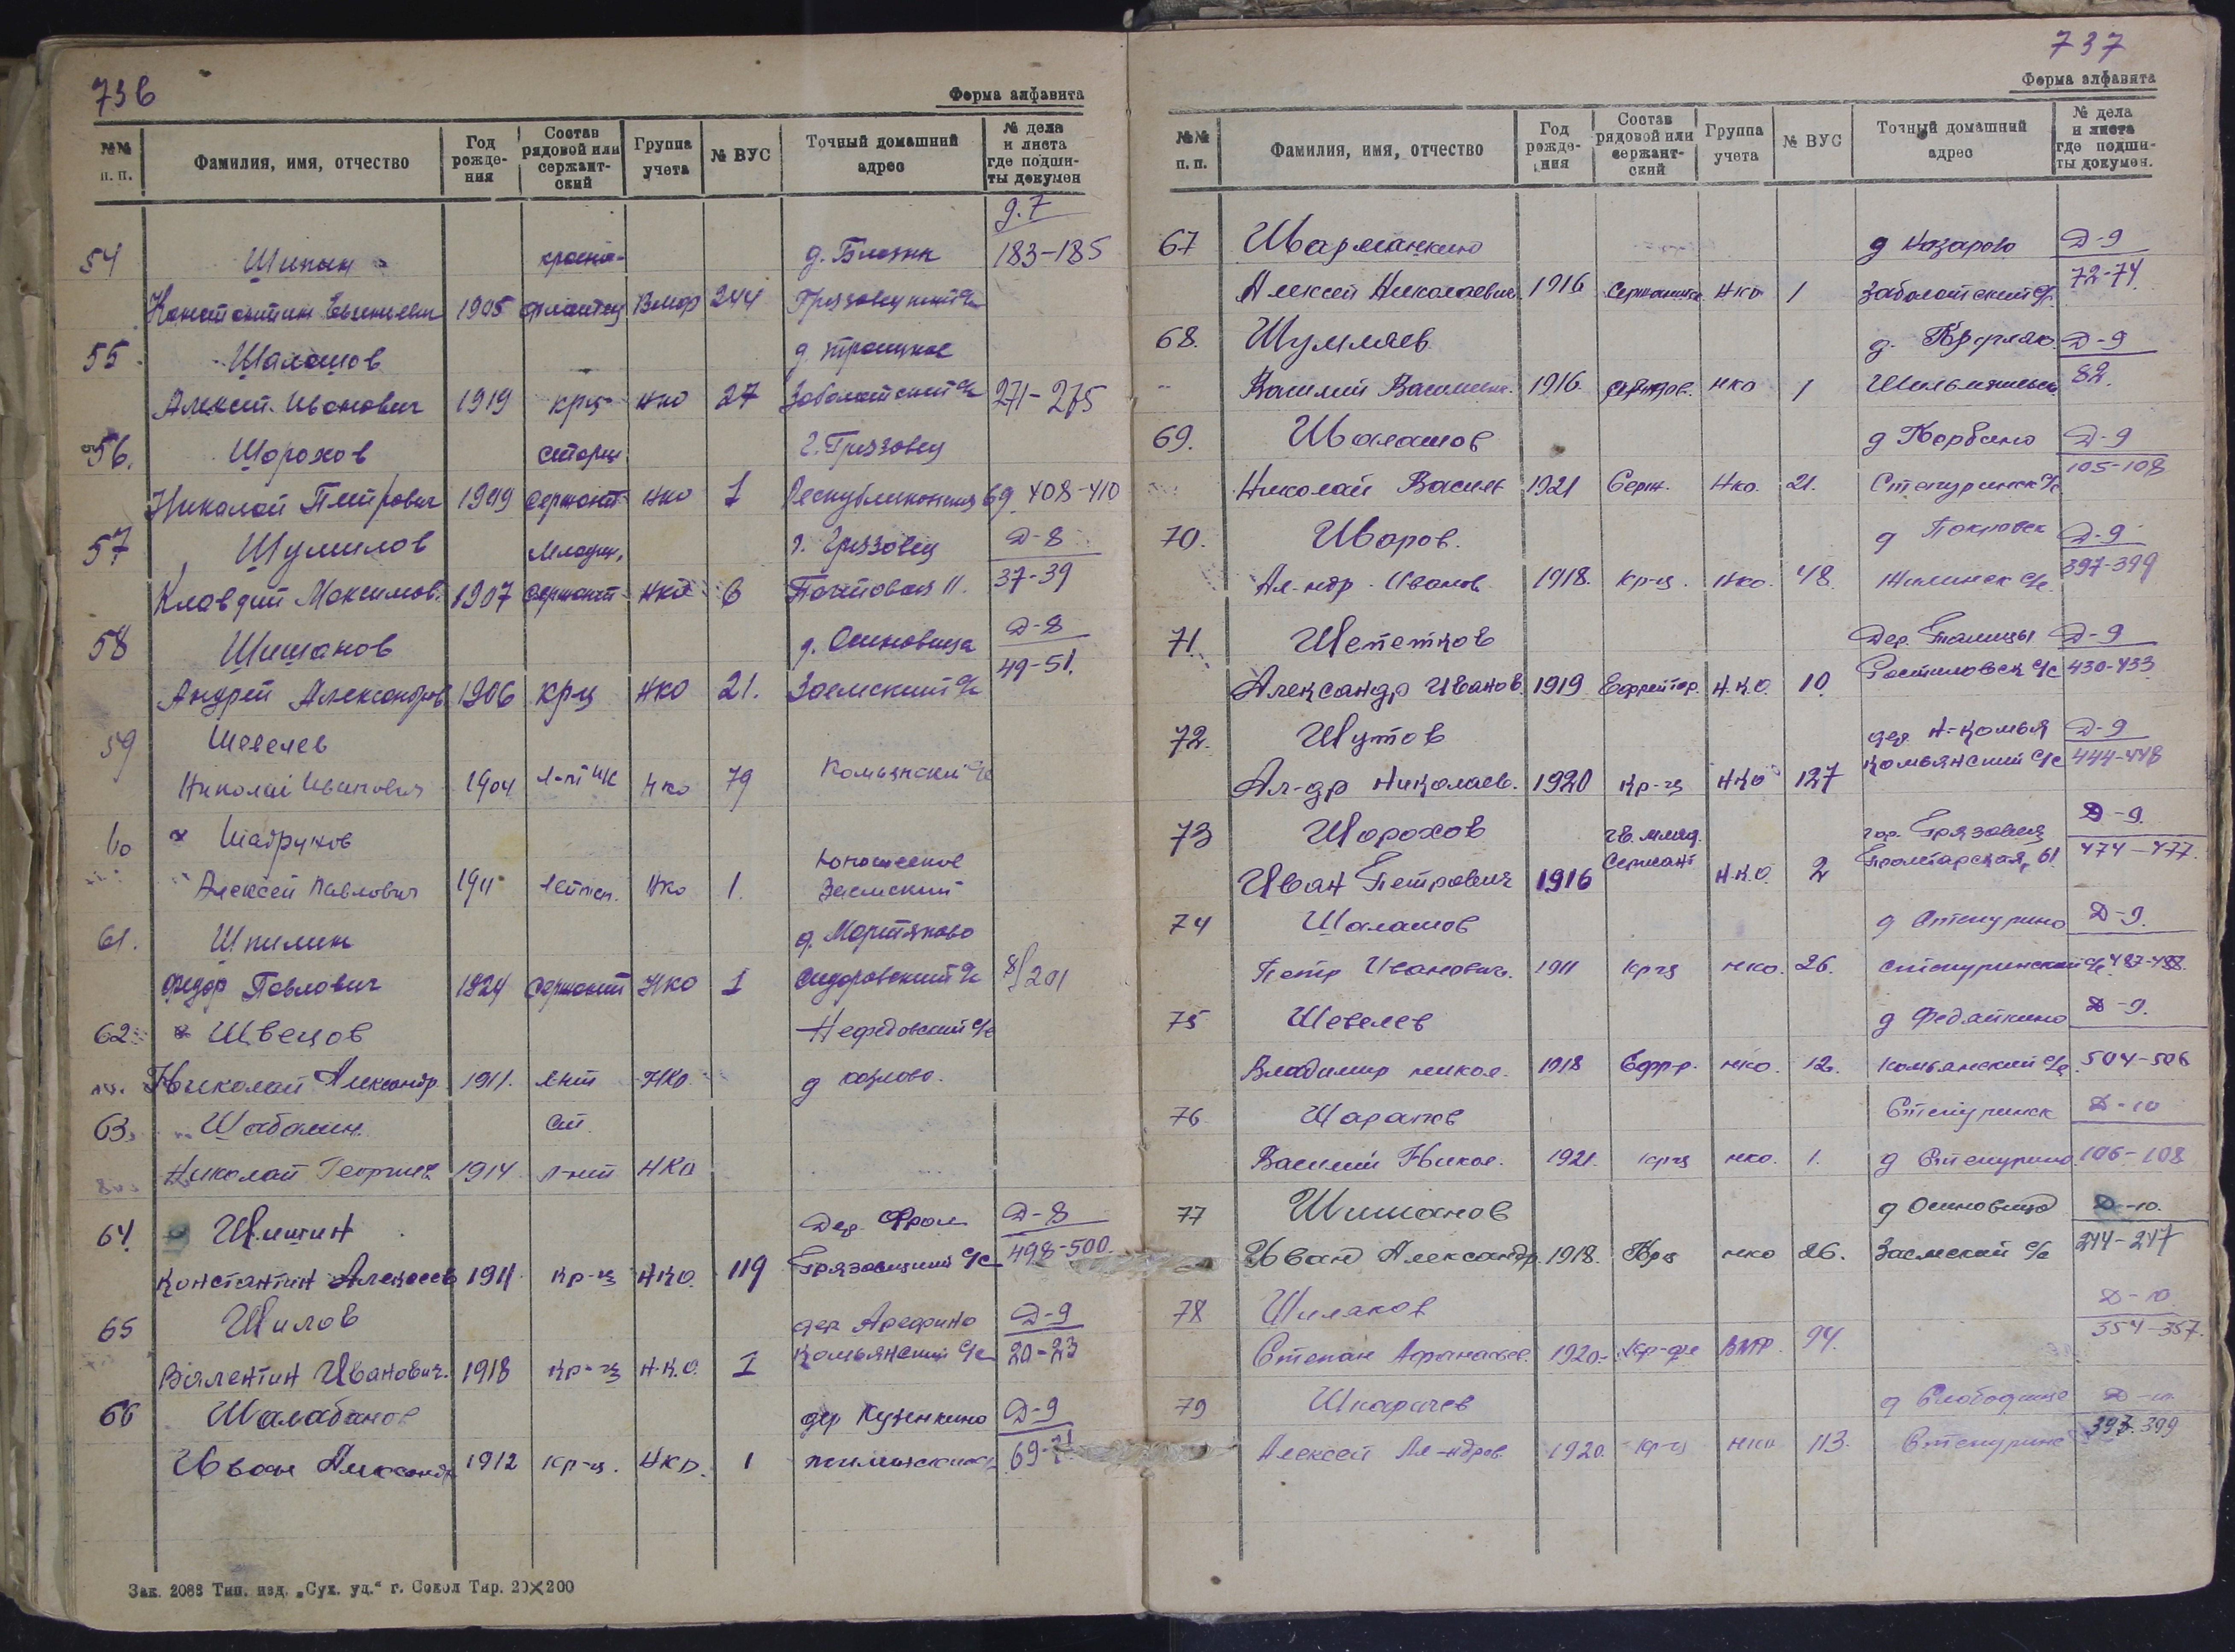 736
Форма алфавита
№№ п. п. Фамилия, имя, отчество Год рожде- ния Состав рядовой или сержант- ский Группа учета № ВУС Точный домашний адрес № дела и листа где подши- ты докумен
д. 7
54 Шипин красно- 183-185
Константин 1905 флотец Вмор 244 Грязовецкий с/с
55 Шалашов д. Троицкое
Алексей Иванович 1919 крц нко 27 Заболотский с/с 271-275
56. Шорохов старш г. Грязовец
Николай Петрович 1919 сержант нко 1 Республиканская 69 408-410
57 Шумилов младш. г. Грязовец Д-8
Клавдий Максимов. 1907 сержант нко 6 Почтовая 11. 37-39
58 Шишанов д. Осиновица Д-8
Андрей Александров 1906 крц нко 21. Заемский с/с 49-51.
59 Шевелев
Николай Иванович 1904 нко 79 Комьянский с/с
60 Шадрунов Юношеское
Алексей Павлович 1911 лейтен. Нко 1. Заемский
61. Шпилин д. Мартяково
Федор Павлович 1924 сержант НКО 1 Сидоровский с/с 8/201
62 Швецов Нефедовский с/с
Николай Александр. 1911. л-нт НКО. д Козлово.
63. Шабалин. ст.
Николай Георгиев 1914 л-нт НКО
64. Шишин Дер. Фрол Д-8
Константин Алексеев 1911 кр-ц НКО. 119 Грязовецкий с/с 498-500.
65 Шилов дер Арефино Д-9
Валентин Иванович. 1918 кр-ц Н.К.О. 1 Комьянский с/с 20-23
66 Шалабанов дер Кузенкино Д-9
Иван Александр 1912 кр-ц. НКО. 1 69-71
Зак. 2088 Тип. изд. „Сух. уд.“ г. Сокол Тир. 20×200
737
Форма алфавита
№№ п. п. Фамилия, имя, отчество Год рожде- ния Состав рядовой или сержант- ский Группа учета № ВУС Точный домашний адрес № дела и листа где подши- ты докумен.
67 Шарманкин д Назарово Д-9
Алексей Николаевич 1916 Нко 1 Заболотский с/с 72-74
68. Шумляев д. Д-9
Василий Василь 1916 нко 1 82.
69. Шалашов д Д-9
Николай Василь 1921 Серж. Нко. 21. Степуринск с/с 105-108
70. Шаров. д Покровск Д-9
Ал-ндр Иванов. 1918. кр-ц. Нко. 48. с/с. 397-399
71. Шепетков Дер. Талицы Д-9
Александр Иванов. 1919 Ефрейтор. Н.К.О. 10. Ростиловск с/с 430-433
72. Шутов дер Н-Комья Д-9
Ал-др Николаев. 1920 кр-ц НКО 127 Комьянский с/с 444-448
73 Шорохов гв. млад. гор. Грязовец Д-9.
Иван Петрович 1916 Сержант Н.К.О. 2 Пролетарская, 61. 474-477.
74 Шалашов д Степурино Д-9.
Петр Иванович. 1911 крц нко. 26. Степуринский с/с
75 Шевелев д Федяйкино Д-9.
Владимир никол. 1918 Ефр-р. нко. 12. Комьянский с/с. 504-506
76 Шарапов Степуринск Д-10
Василий Никол. 1921. крц нко. 1. д Степурино 106-108
77 Шишанов д Осиновица Д-10.
Иван Александр. 1918. Крц нко 26. Заемский с/с 244-247
78 Шиляков Д-10
Степан Афанасьев. 1920. ВМФ. 94. 354-357.
79 Шкарачев д Слободище Д-10
Алексей Ал-ндров. 1920. кр-ц нко 113. Степурино 399